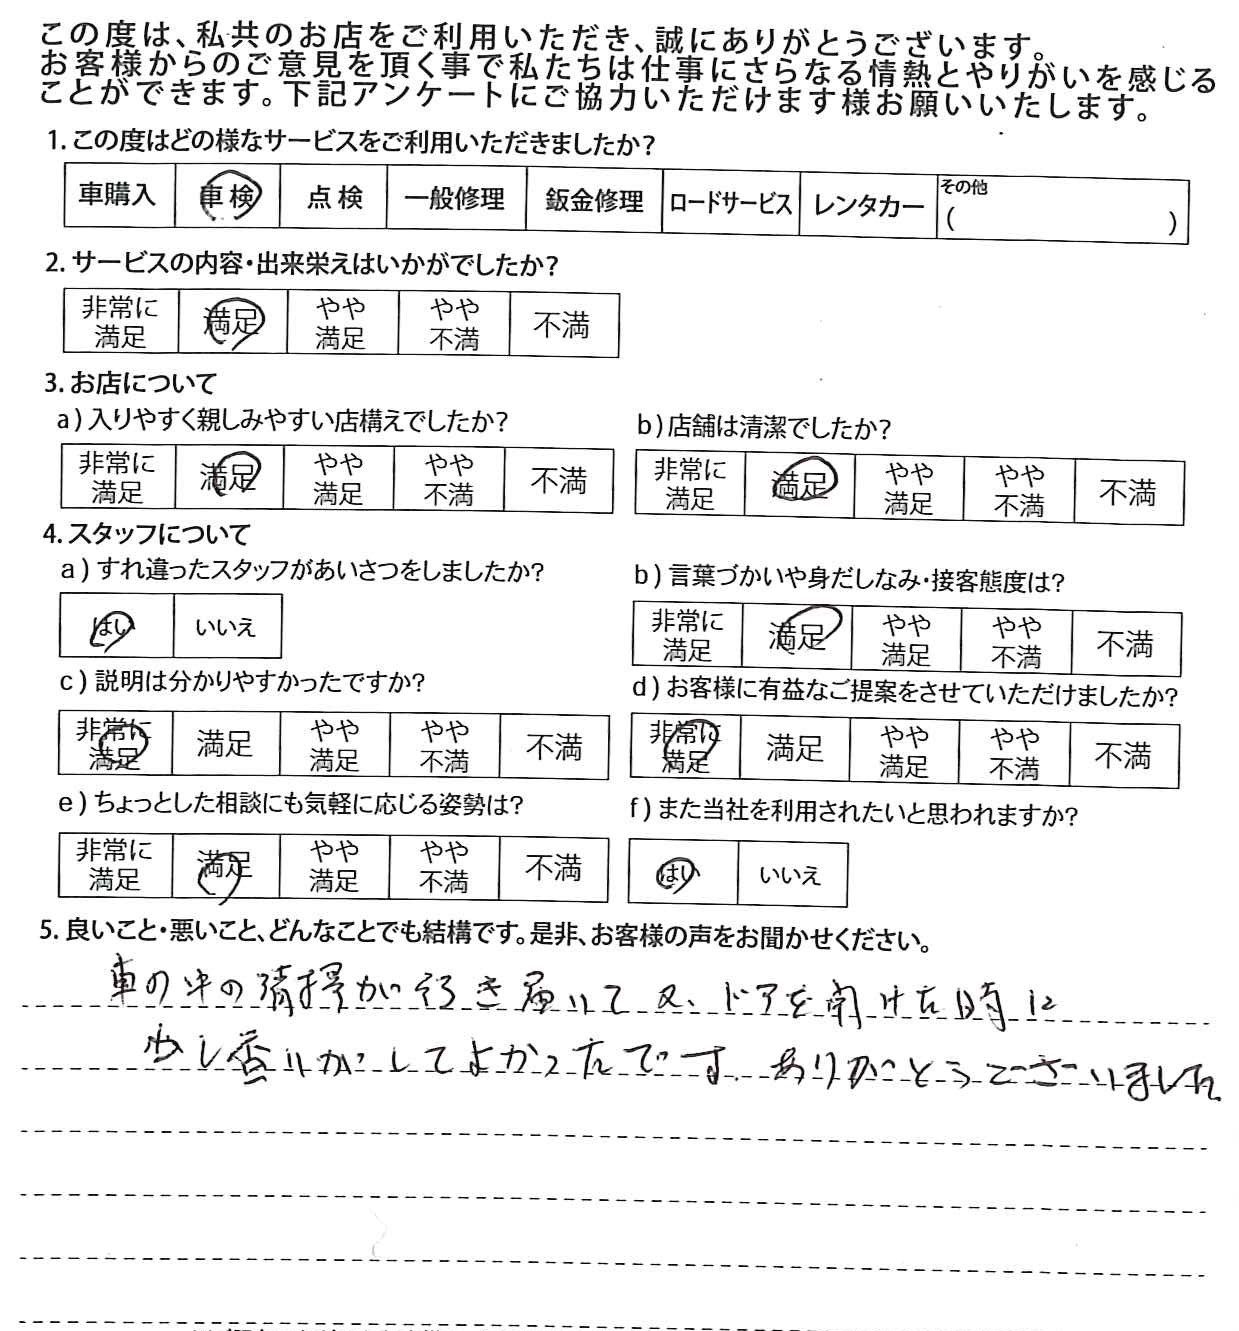 この度は、私共のお店をご利用いただき、誠にありがとうございます。
お客様からのご意見を頂く事で私たちは仕事にさらなる情熱とやりがいを感じる
ことができます。下記アンケートにご協力いただけます様お願いいたします。
1. この度はどの様なサービスをご利用いただきましたか？
車購入 車検 点検 一般修理 鈑金修理 ロードサービス レンタカー その他 ( )
2. サービスの内容・出来栄えはいかがでしたか？
非常に満足 満足 やや満足 やや不満 不満
3. お店について
a) 入りやすく親しみやすい店構えでしたか？
非常に満足 満足 やや満足 やや不満 不満
b) 店舗は清潔でしたか？
非常に満足 満足 やや満足 やや不満 不満
4. スタッフについて
a) すれ違ったスタッフがあいさつをしましたか？
はい いいえ
b) 言葉づかいや身だしなみ・接客態度は？
非常に満足 満足 やや満足 やや不満 不満
c) 説明は分かりやすかったですか？
非常に満足 満足 やや満足 やや不満 不満
d) お客様に有益なご提案をさせていただけましたか？
非常に満足 満足 やや満足 やや不満 不満
e) ちょっとした相談にも気軽に応じる姿勢は？
非常に満足 満足 やや満足 やや不満 不満
f) また当社を利用されたいと思われますか？
はい いいえ
5. 良いこと・悪いこと、どんなことでも結構です。是非、お客様の声をお聞かせください。
車の中の清掃が行き届いて又、ドアを開けた時に
少し香りがしてよかったです。ありがとうございました